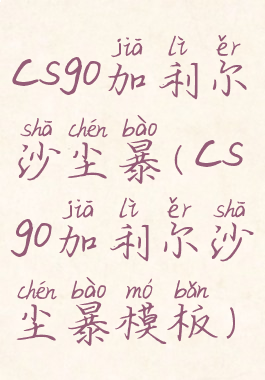 jiā lì ěr
CSgo加利尔
shā chén bào
沙尘暴(CS
jiā lì ěr shā
go加利尔沙
chén bào mó bǎn
尘暴模板)